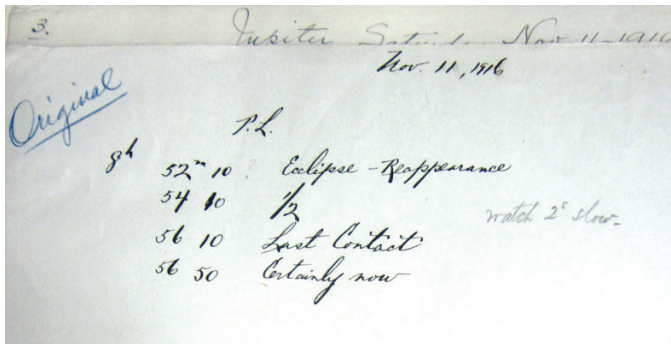 3. Jupiter Saturday Nov-11-1916
Nov. 11, 1916
Original
P.L.
8h 52m 10 ? Eclipse - Reappearance
54 10 1/2
watch 2s slow-
56 10 Last Contact
56 50 Certainly now